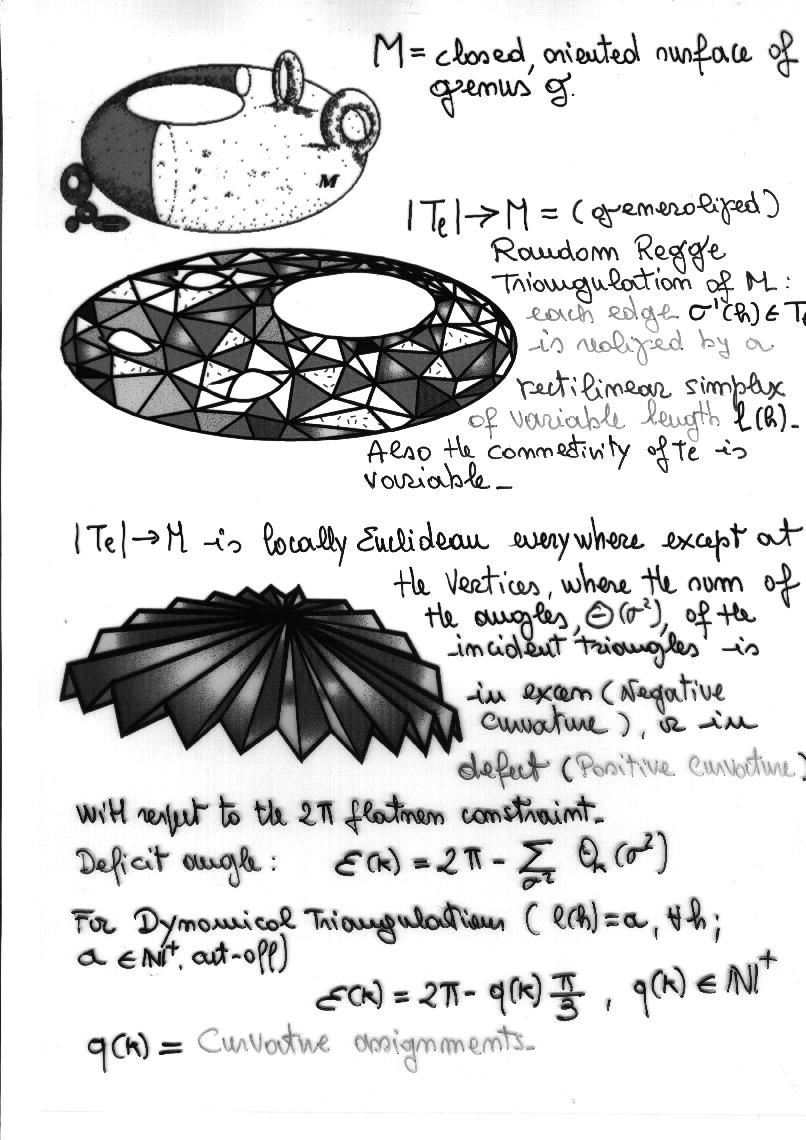 M = closed, oriented surface of
genus g.
M
|Tℓ| → M = (generalized)
Random Regge
Triangulation of M:
each edge σ¹(h) ∈ Tℓ
is realized by a
rectilinear simplex
of variable length ℓ(h).
Also the connectivity of Tℓ is
variable.
|Tℓ| → M is locally Euclidean everywhere except at
the vertices, where the sum of
the angles, Θ(σ²), of the
incident triangles is
in excess (Negative
curvature), or in
defect (Positive curvature)
with respect to the 2π flatness constraint.
Deficit angle: ε(k) = 2π - Σ_σ² Θ_k(σ²)
For Dynamical Triangulations ( ℓ(h) = a, ∀h;
a ∈ ℕ⁺, cut-off)
ε(k) = 2π - q(k) π/3 , q(k) ∈ ℕ⁺
q(k) = Curvature assignments.